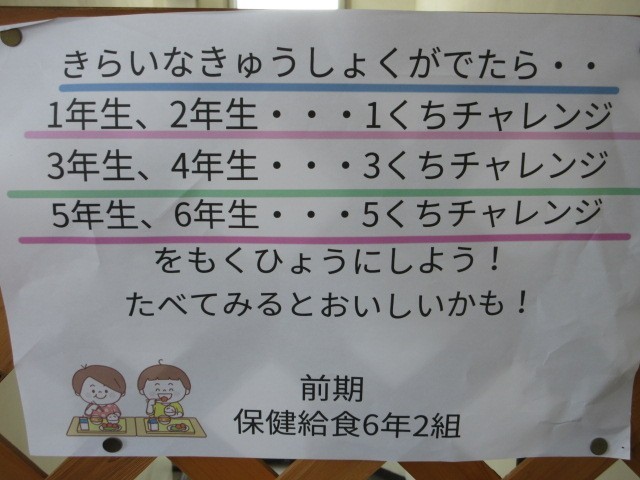 きらいなきゅうしょくがでたら・・
1年生、2年生・・・1くちチャレンジ
3年生、4年生・・・3くちチャレンジ
5年生、6年生・・・5くちチャレンジ
をもくひょうにしよう！
たべてみるとおいしいかも！
前期
保健給食6年2組